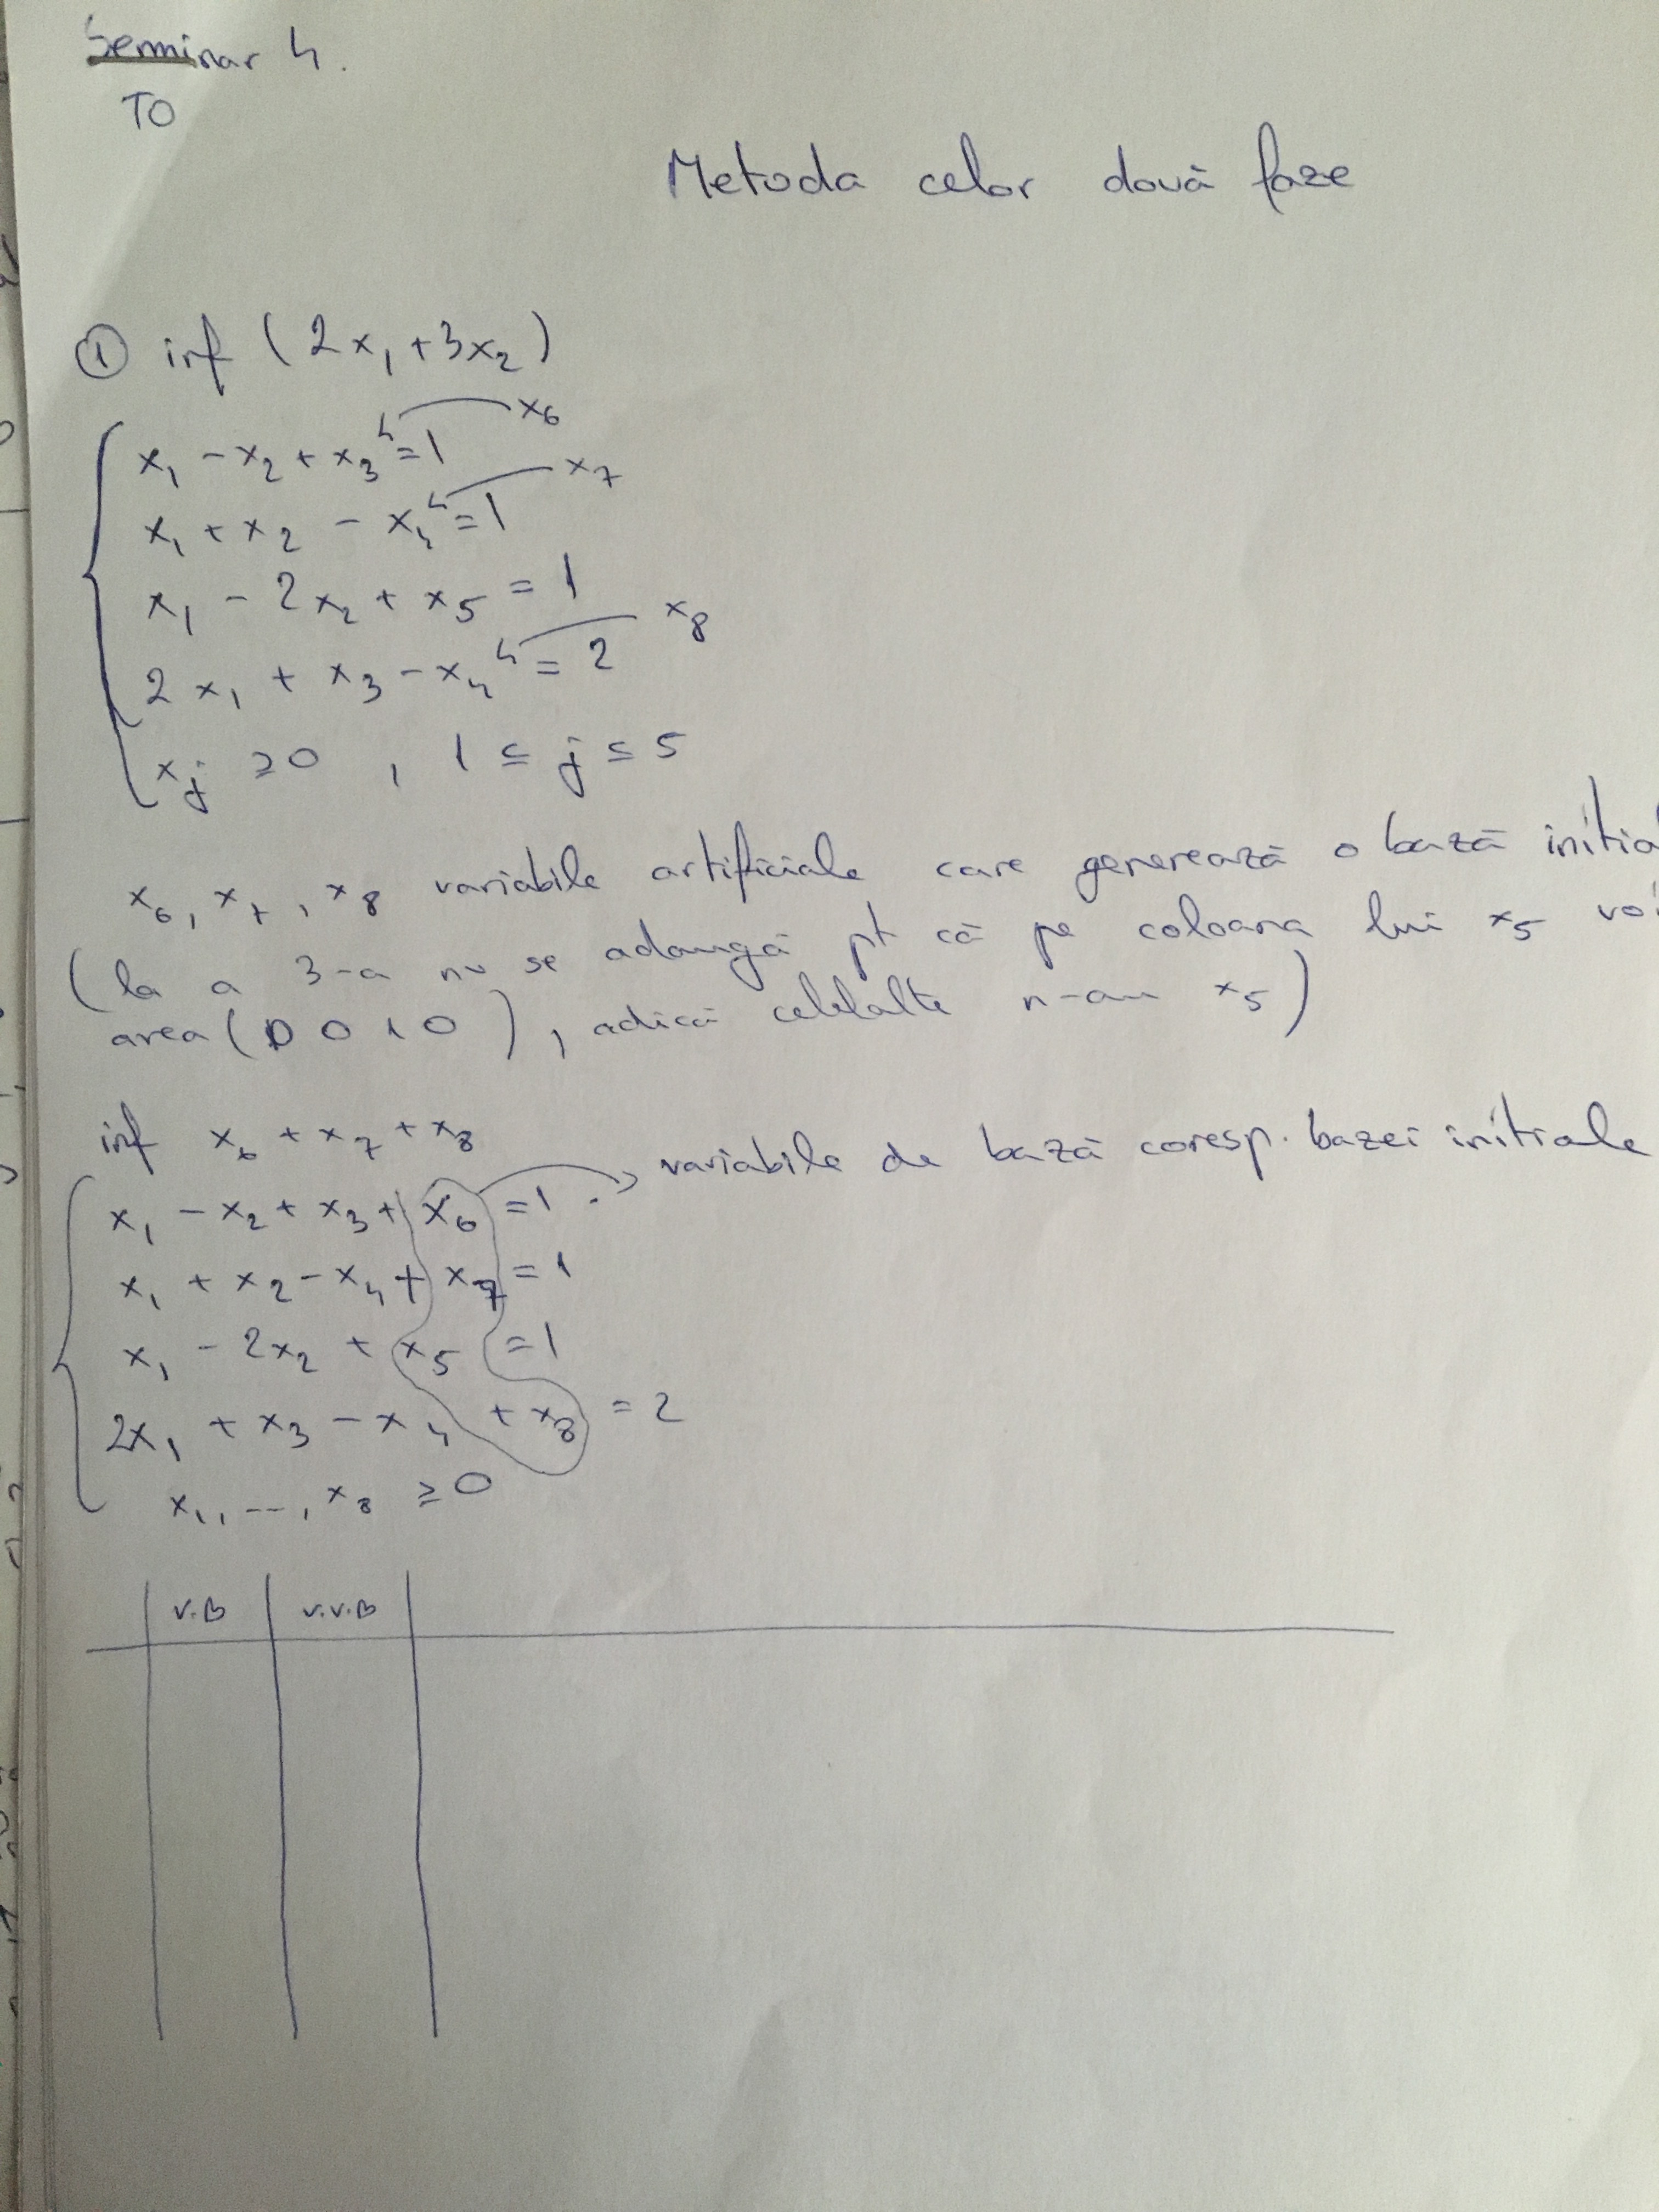 Seminar 4.
TO
Metoda celor două faze
① inf (2x₁ + 3x₂)
x₁ - x₂ + x₃ = 1 x₆
x₁ + x₂ - x₄ = 1 x₇
x₁ - 2x₂ + x₅ = 1
2x₁ + x₃ - x₄ = 2 x₈
xⱼ ≥ 0 , 1 ≤ j ≤ 5
x₆, x₇, x₈ variabile artificiale care generează o bază iniția
(la a 3-a nu se adaugă pt că pe coloana lui x₅ voi
avea (0 0 1 0), adică celelalte n-au x₅)
inf x₆ + x₇ + x₈
x₁ - x₂ + x₃ + x₆ = 1 . → variabile de bază coresp. bazei inițiale
x₁ + x₂ - x₄ + x₇ = 1
x₁ - 2x₂ + x₅ = 1
2x₁ + x₃ - x₄ + x₈ = 2
x₁, --, x₈ ≥ 0
V.B V.V.B